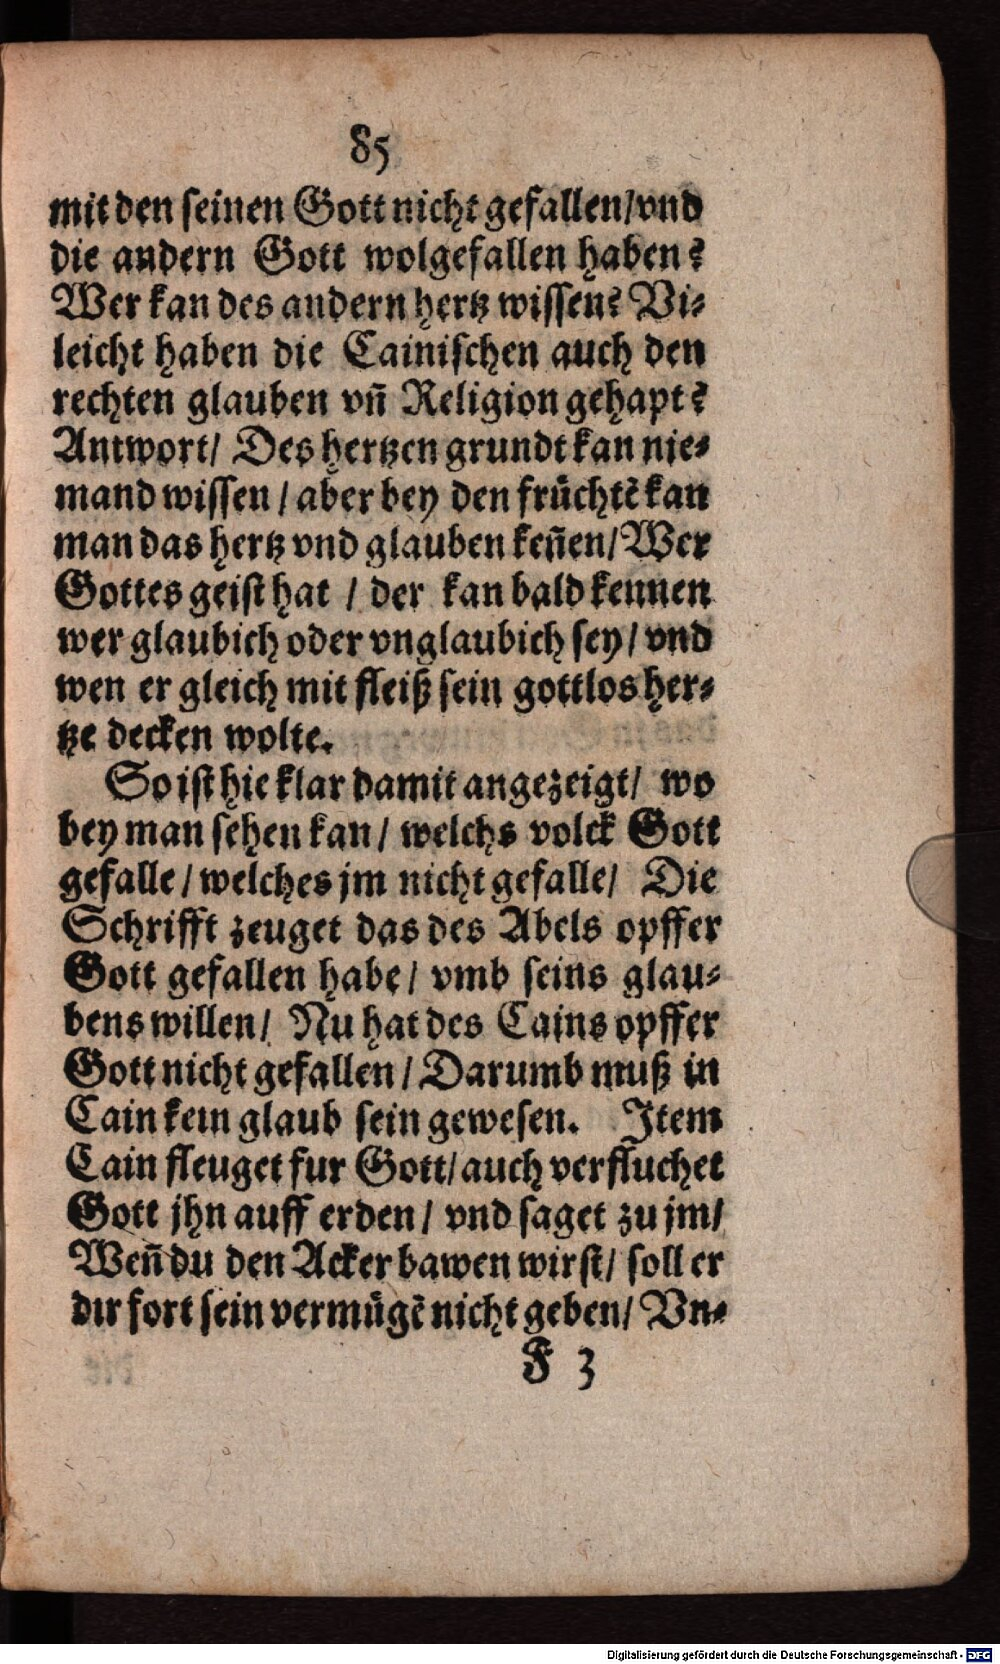 85
mit den seinen Gott nicht gefallen/vnd
die andern Gott wolgefallen haben?
Wer kan des andern hertz wissen? Vi⸗
leicht haben die Cainischen auch den
rechten glauben vñ Religion gehapt?
Antwort/ Des hertzen grundt kan nie⸗
mand wissen / aber bey den früchtē kan
man das hertz vnd glauben keñen/Wer
Gottes geist hat / der kan bald kennen
wer glaubich oder vnglaubich sey/ vnd
wen er gleich mit fleiß sein gottlos her⸗
tze decken wolte.
So ist hie klar damit angezeigt/ wo
bey man sehen kan/ welchs volck Gott
gefalle/welches jm nicht gefalle/ Die
Schrifft zeuget das des Abels opffer
Gott gefallen habe/ vmb seins glau⸗
bens willen/ Nu hat des Cains opffer
Gott nicht gefallen / Darumb muß in
Cain kein glaub sein gewesen. Item
Cain fleuget fur Gott/auch verfluchet
Gott jhn auff erden/ vnd saget zu jm/
Weñ du den Acker bawen wirst/ soll er
dir fort sein vermügē nicht geben/ Vn⸗
F 3
Digitalisierung gefördert durch die Deutsche Forschungsgemeinschaft - DFG